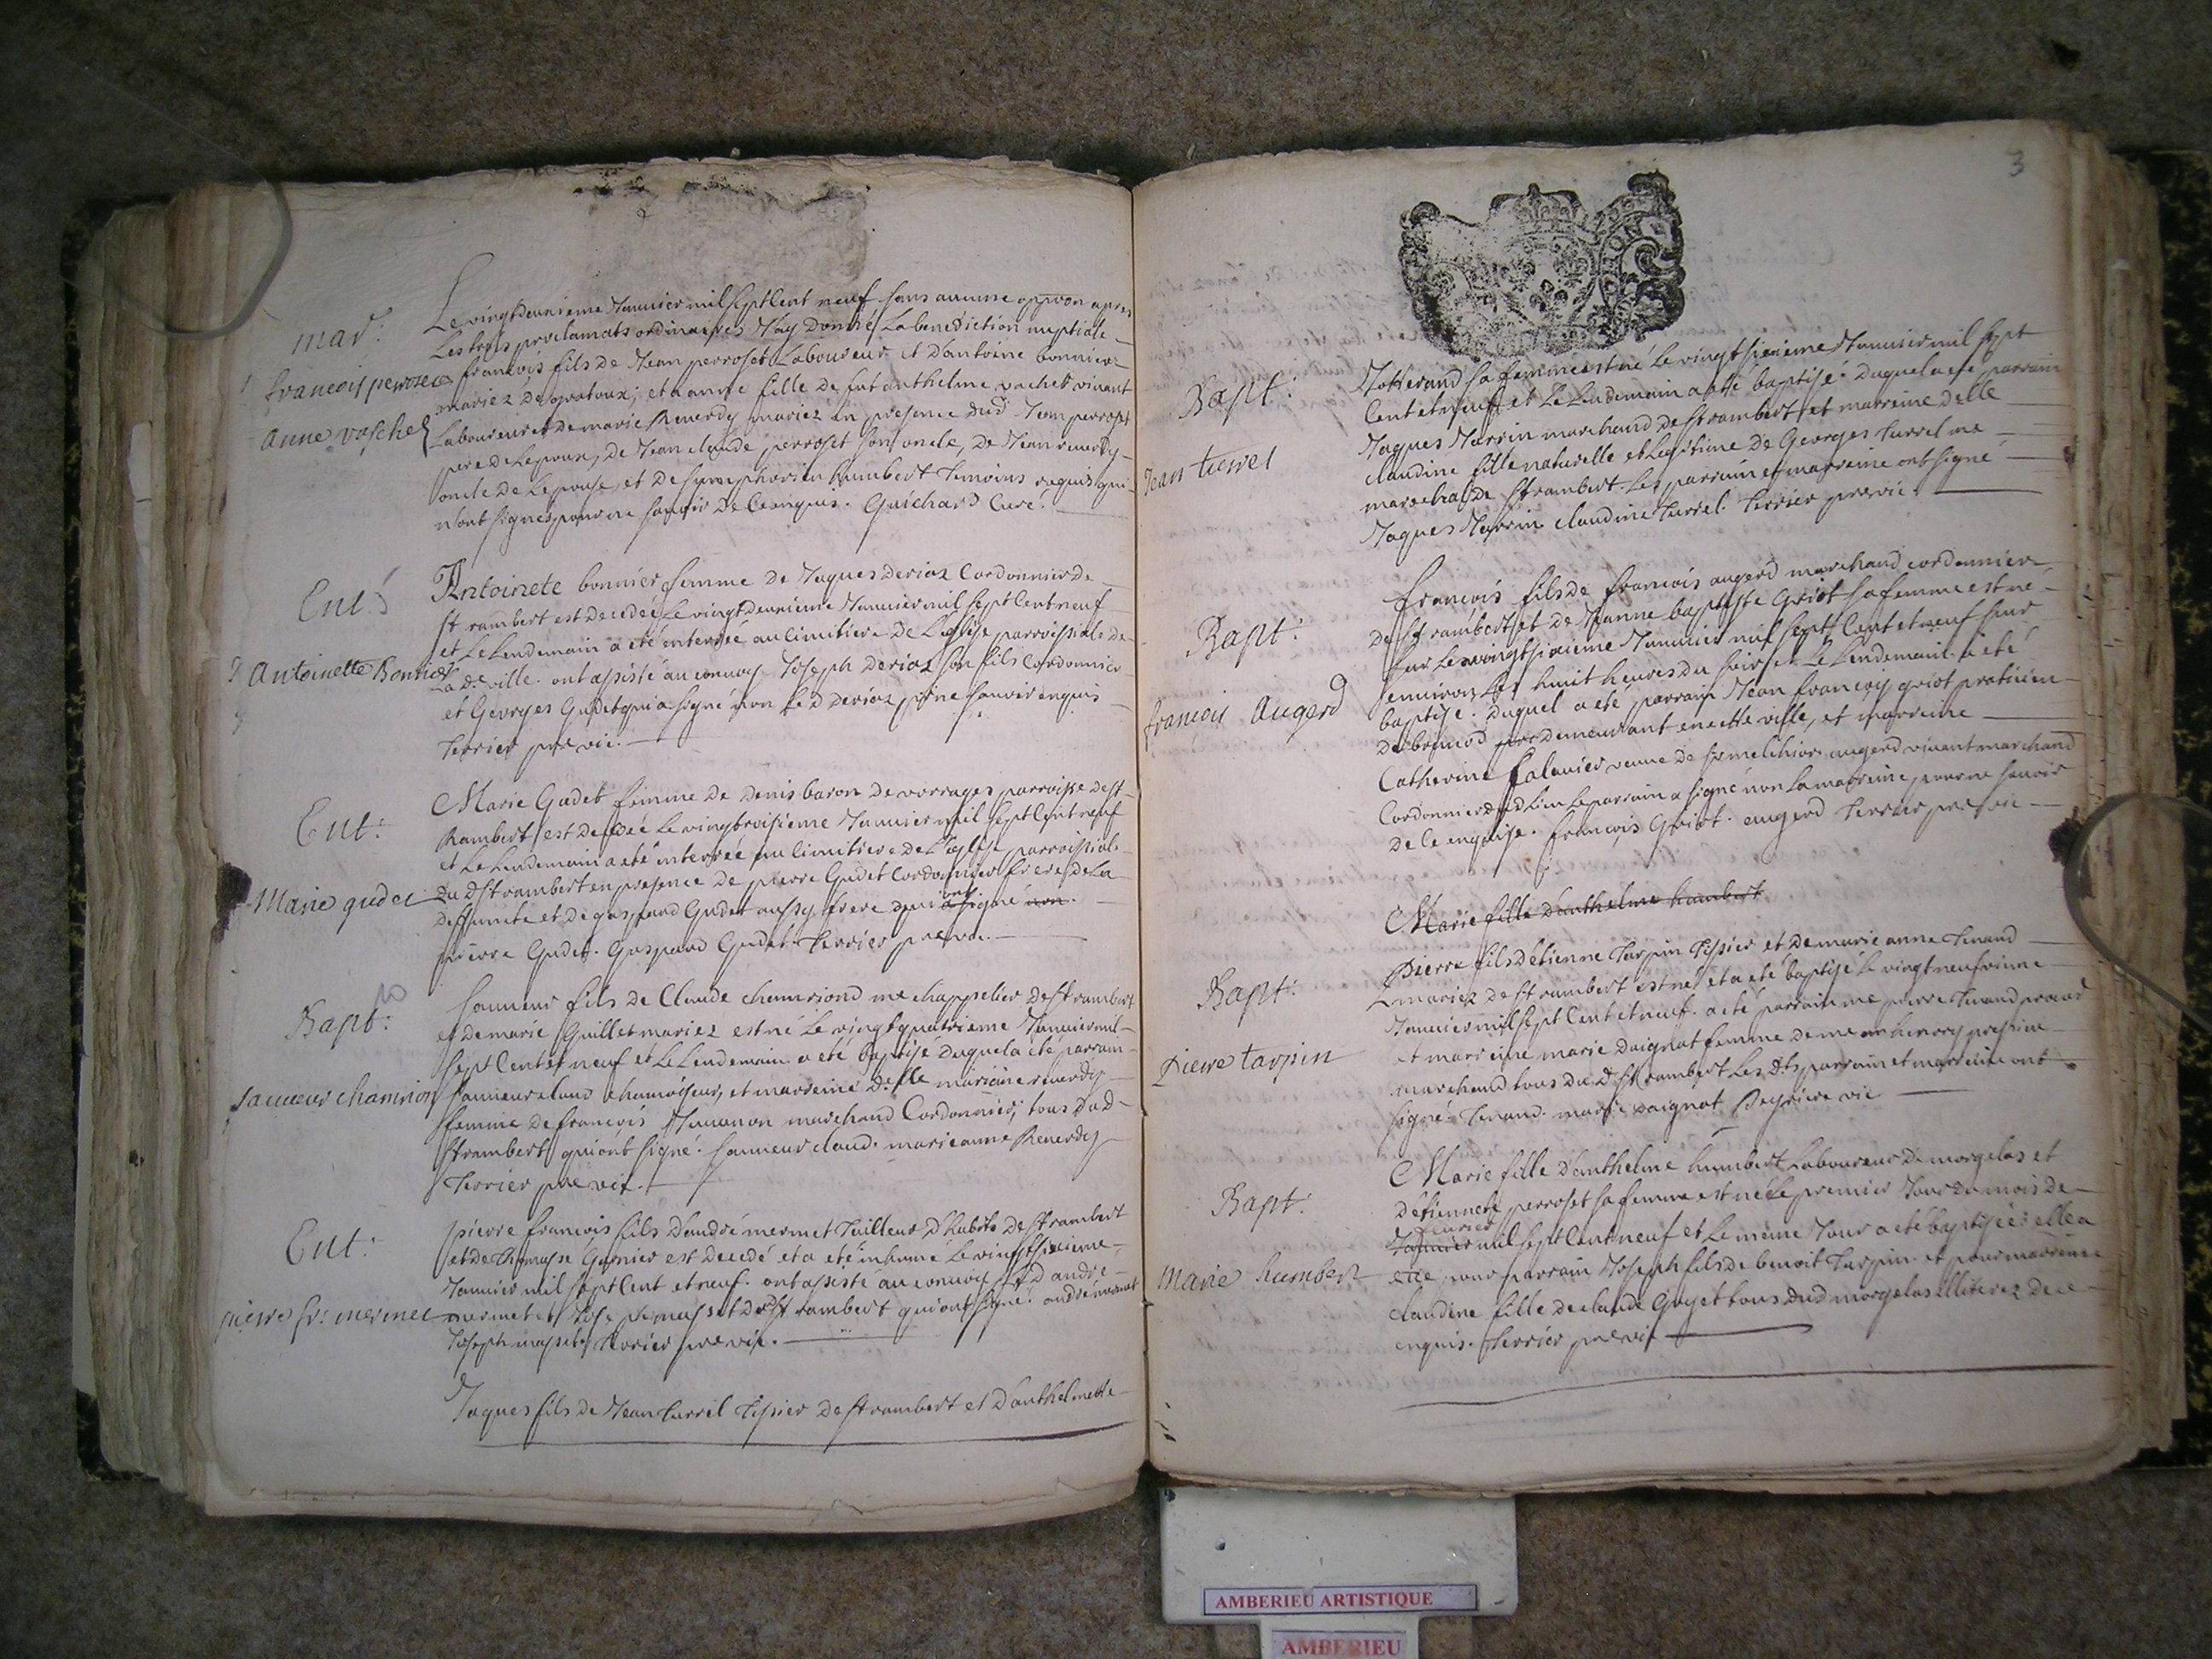 mar:
francois perroset
anne vachet
Le vingtdeuxieme Januier mil sept Cent neuf sans aucune oppoon apres
Les trois proclamats ordinaires J'ay Donné La benediction nuptiale
a francois fils de Jean perroset Laboureur et d'antoine bonnier
mariez de gratoux; et a anne fille de fut anthelme vachet viuant
Laboureur et de marie Reuerdy mariez en presence dud Jean perroset
pere de Lepoux, de Jean claude perroset son oncle, de Jean reuerdy
oncle de Lepouse, et de symphorien humbert temoins requis qui
n'ont signés pour ne sauoir De ce enquis. Guichard Curé.
Ent:
Antoinette Bonnier
Antoinete bonnier femme de Jaques deriaz Cordonnier de
St rambert est decedée Le vingtdeuxieme Januier mil sept Cent neuf
et Le Lendemain a été enterrée au cimitiere De L'eglise parroissiale de
La de. ville. ont assisté au conuoy Joseph Deriaz son fils Cordonnier
et Georges Gudet qui a signé non led deriaz pr ne sauoir enquis
Terrier pre vic.
Ent:
Marie gudet
Marie Gudet femme de denis baron de vorrages parroisse de St
Rambert est decedée Le vingt troisieme Januier mil sept Cent neuf
et Le Lendemain a été enterrée au cimitiere de L'eglise parroissiale
du d St rambert en presence de pierre Gudet Cordonnier frere de La
deffunte et de gaspard Gudet aussy frere qui ont a signé non.
pierre Gudet. Gaspard Gudet. Terrier pre vic.
Bapt:
sauueur chamrion
Sauueur fils de Claude chamriond me chappelier de St rambert
et de marie Guillet mariez est né Le vingt quatrieme Januier mil
sept Cent et neuf et Le Lendemain a été baptisé duquel a été parrain
sauueur claud chamoiseur, et marreine delle mariane reuerdy
femme de francois Juuanon marchand Cordonnier; tous dud
St rambert qui ont signé. sauueur claud. marieanne Reuerdy
Terrier pre vic.
Ent:
pierre fr: mermet
pierre francois fils d'andré mermet Tailleur d'habits de St rambert
et de Thomase Garnier est decedé et a été inhumé Le vingt sixieme
Januier mil sept Cent et neuf. ont assisté au conuoy led andre
mermet et Jose masset du d St rambert qui ont signé. andré mermet
Joseph masset Terrier pre vic.
Jaques fils de Jean Turrel Tissier de St rambert et d'anthelmette
3
Bapt:
Jean turrel
Jotterand sa femme est né Le vingt sixieme Januier mil sept
Cent et neuf et Le Lendemain a été baptisé. Duquel a été parrain
Jaques Jarrin marchand de St rambert et marreine delle
claudine fille naturelle et Legitime de Georges turrel me
marechal de St rambert. Les parrain et marreine ont signé
Jaques Jarrin claudine turrel. Terrier pre vic.
Bapt:
francois Augerd
francois fils de francois augerd marchand cordonnier
de St rambert et de Jeanne baptiste Griot sa femme est né
sur Le vingt sixieme Januier mil sept Cent et neuf sur
enuiron Les huit heures du soir et Le Lendemain a été
baptisé. Duquel a été parrain Jean francois griot praticien
demeurant en cette ville, et marreine
Catherine falauier veuue de sr melchior augerd viuant marchand
Cordonnier dud Lieu Le parrain a signé non La marreine pour ne sauoir
de ce enquise. francois Griot. augerd Terrier pre vic
Marie fille d'anthelme humbert
Bapt:
pierre tarpin
Pierre fils d'etienne Tarpin Tissier et de marie anne Tenand
mariez de St rambert est né et a été baptisé Le vingt neufuieme
Januier mil sept Cent et neuf. a été parrain me pierre Tenand
et marreine marie daignat femme de me
marchand tous du d St rambert Les dts parrain et marreine ont
signé Tenand. marie daignat Peyriere vic
Bapt:
Marie humbert
Marie fille d'anthelme humbert Laboureur de morgelas et
d'etiennete perroset sa femme est née Le premier Jour du mois de
feurier
Januier mil sept Cent neuf et Le même Jour a été baptisée: elle a
eüe pour parrain Joseph fils de benoit Tarpin et pour marreine
claudine fille de claude Goyet tous dud morgelas illiterez de ce
enquis. Terrier pre vic
AMBERIEU ARTISTIQUE
AMBERIEU